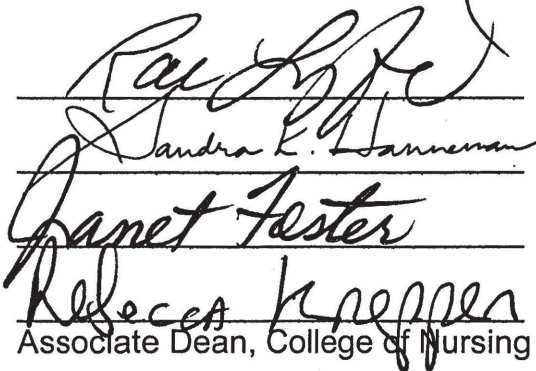 Rae
Sandra K. Hanneman
Janet Foster
Rebecca Krepper
Associate Dean, College of Nursing